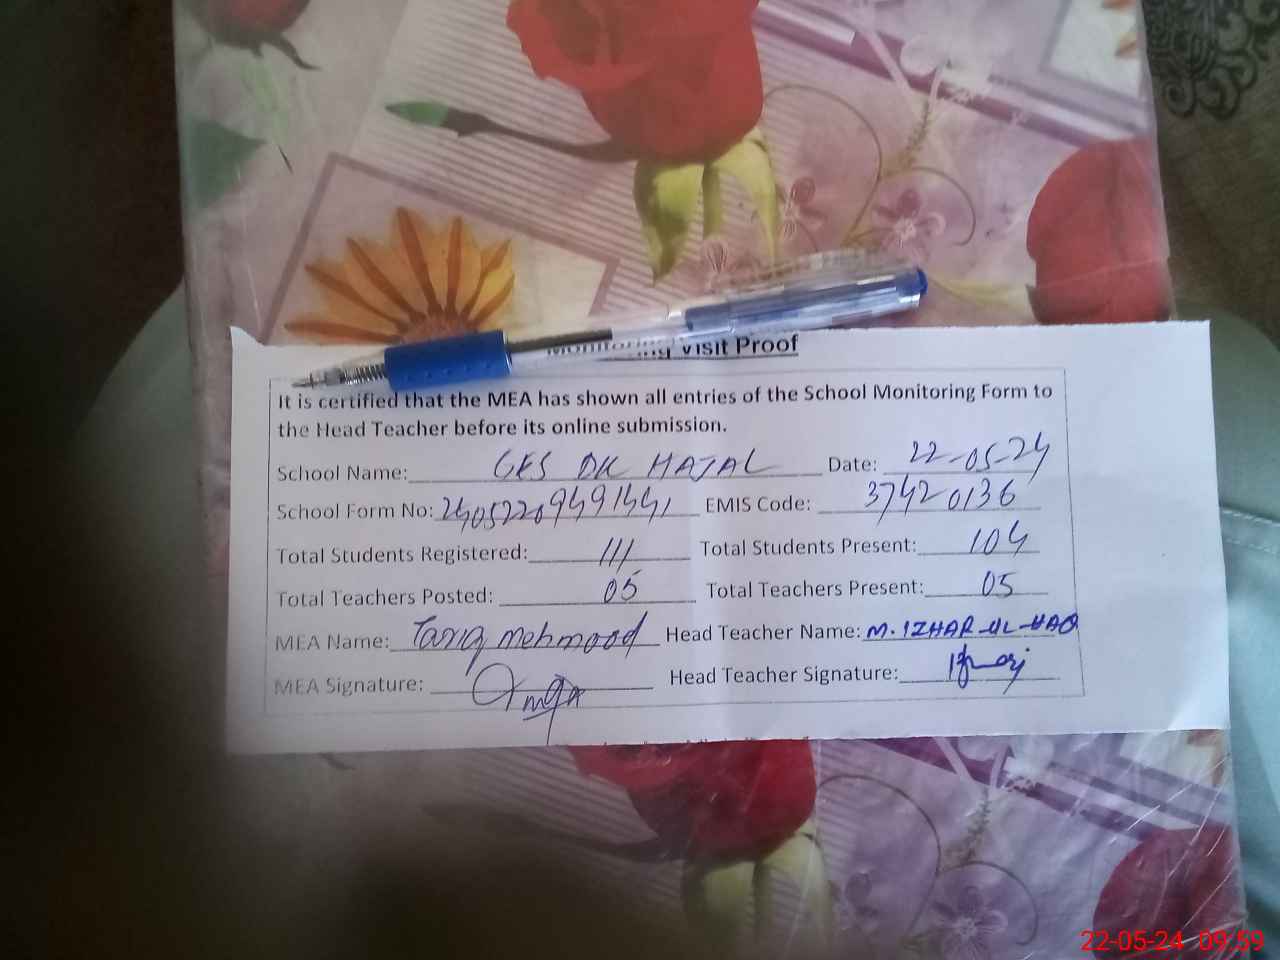 Monitoring Visit Proof
It is certified that the MEA has shown all entries of the School Monitoring Form to
the Head Teacher before its online submission.
School Name: GES DK HAJAL Date: 22-05-24
School Form No: EMIS Code: 37420136
Total Students Registered: 111 Total Students Present: 104
Total Teachers Posted: 05 Total Teachers Present: 05
MEA Name: Tariq Mehmood Head Teacher Name: M. IZHAR-UL-HAQ
MEA Signature: Head Teacher Signature:
22-05-24 09:59